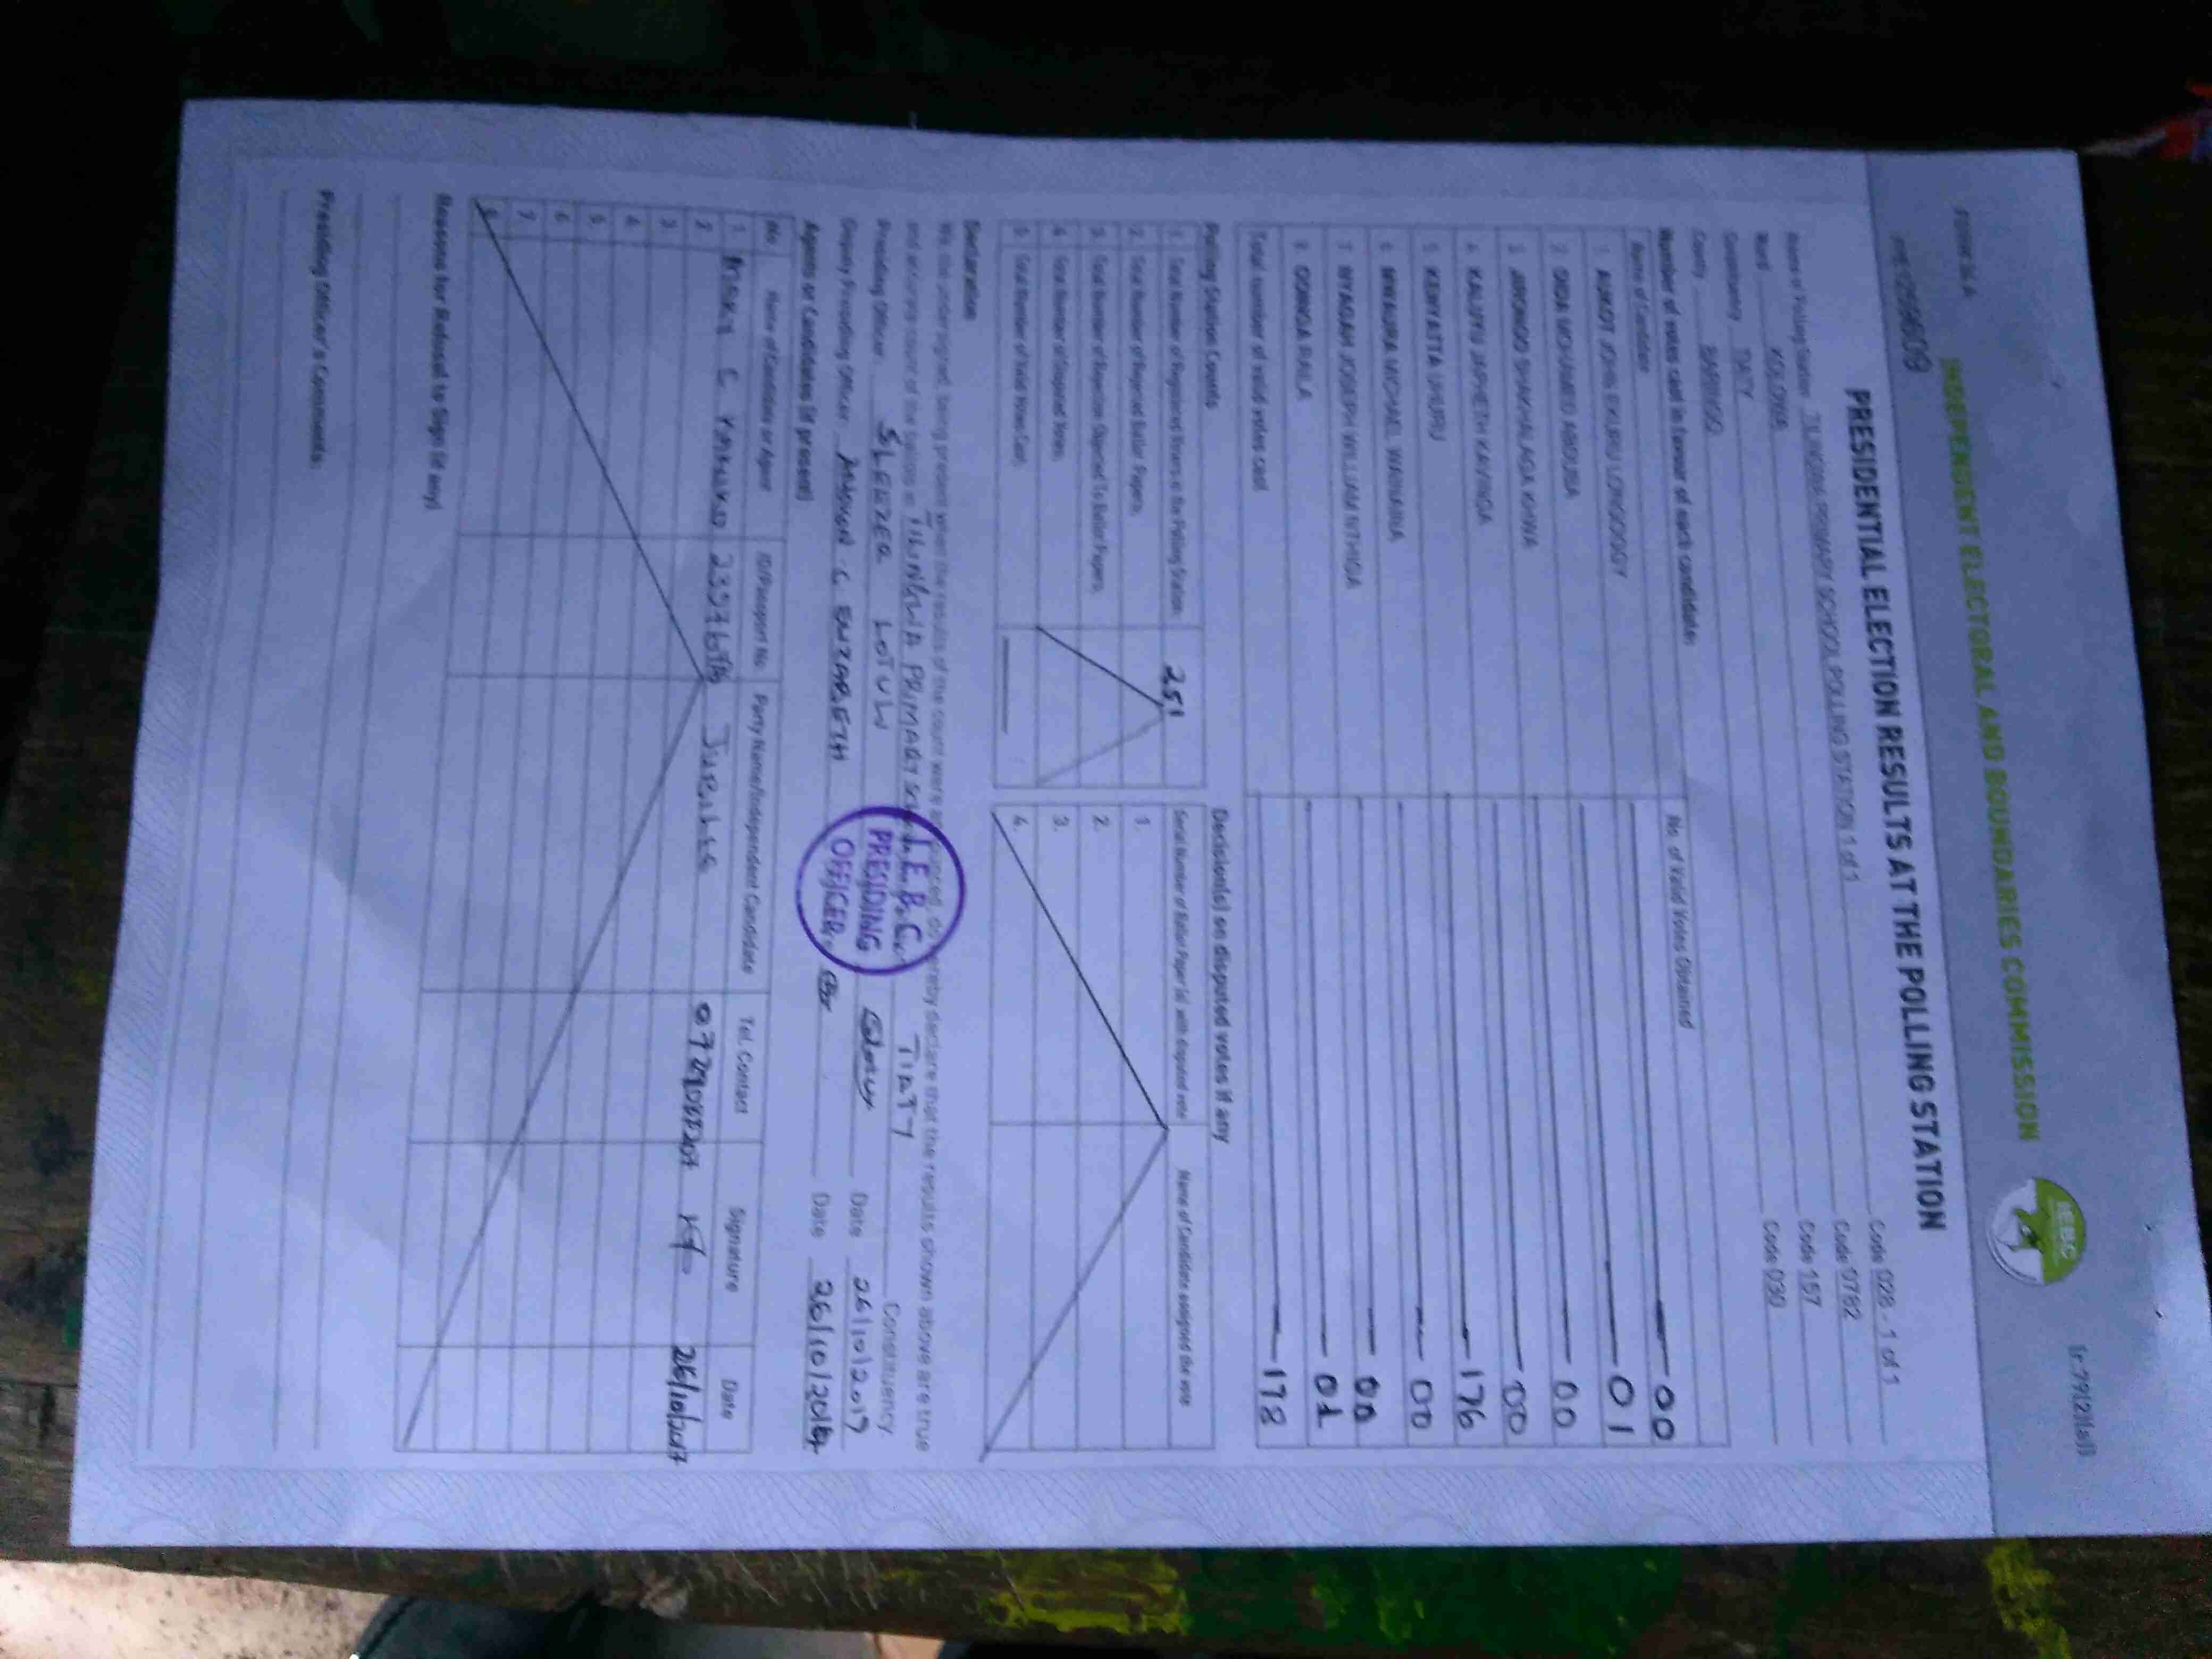 FORM 34 A
[r.79(2)(a)]
INDEPENDENT ELECTORAL AND BOUNDARIES COMMISSION
IEBC
PRESIDENTIAL ELECTION RESULTS AT THE POLLING STATION
Name of Polling Station PRIMARY SCHOOL POLLING STATION 1 of 1 Code 028 - 1 of 1
Ward KOLOWA Code 0782
Constituency TIATY Code 157
County BARINGO Code 030
Number of votes cast in favour of each candidate:
Name of Candidate No. of Valid Votes Obtained
1. AUKOT JOHN EKURU LONGOGGY 00
2. DIDA MOHAMED ABDUBA 01
3. JIRONGO SHAKHALAGA KHWA 00
4. KALUYU JAPHETH KAVINGA 00
5. KENYATTA UHURU 176
6. MWAURA MICHAEL WAINAINA 00
7. NYAGAH JOSEPH WILLIAM NTHIGA 00
8. ODINGA RAILA 01
Total number of valid votes cast 178
Polling Station Counts Decision(s) on disputed votes if any
1. Total Number of Registered Voters in the Polling Station 251
2. Total Number of Rejected Ballot Papers
3. Total Number of Rejection Objected To Ballot Papers
4. Total Number of Disputed Votes
5. Total Number of Valid Votes Cast
Serial Number of Ballot Paper (s) with disputed vote Name of Candidate assigned the vote
1.
2.
3.
4.
Declaration
We, the undersigned, being present when the results of the count were announced, do hereby declare that the results shown above are true
and accurate count of the ballots in PRIMARY TIATY Constituency
Presiding Officer LOTUW Date 26/10/2017
Deputy Presiding Officer Date 26/10/2017
I.E.B.C.
PRESIDING
OFFICER
Agents or Candidates (if present)
No Name of Candidate or Agent ID/Passport No. Party Name/Independent Candidate Tel. Contact Signature Date
1. JUBILEE 26/10/2017
2
3
4
5
6
7
8
Reasons for Refusal to Sign (if any)
Presiding Officer's Comments: